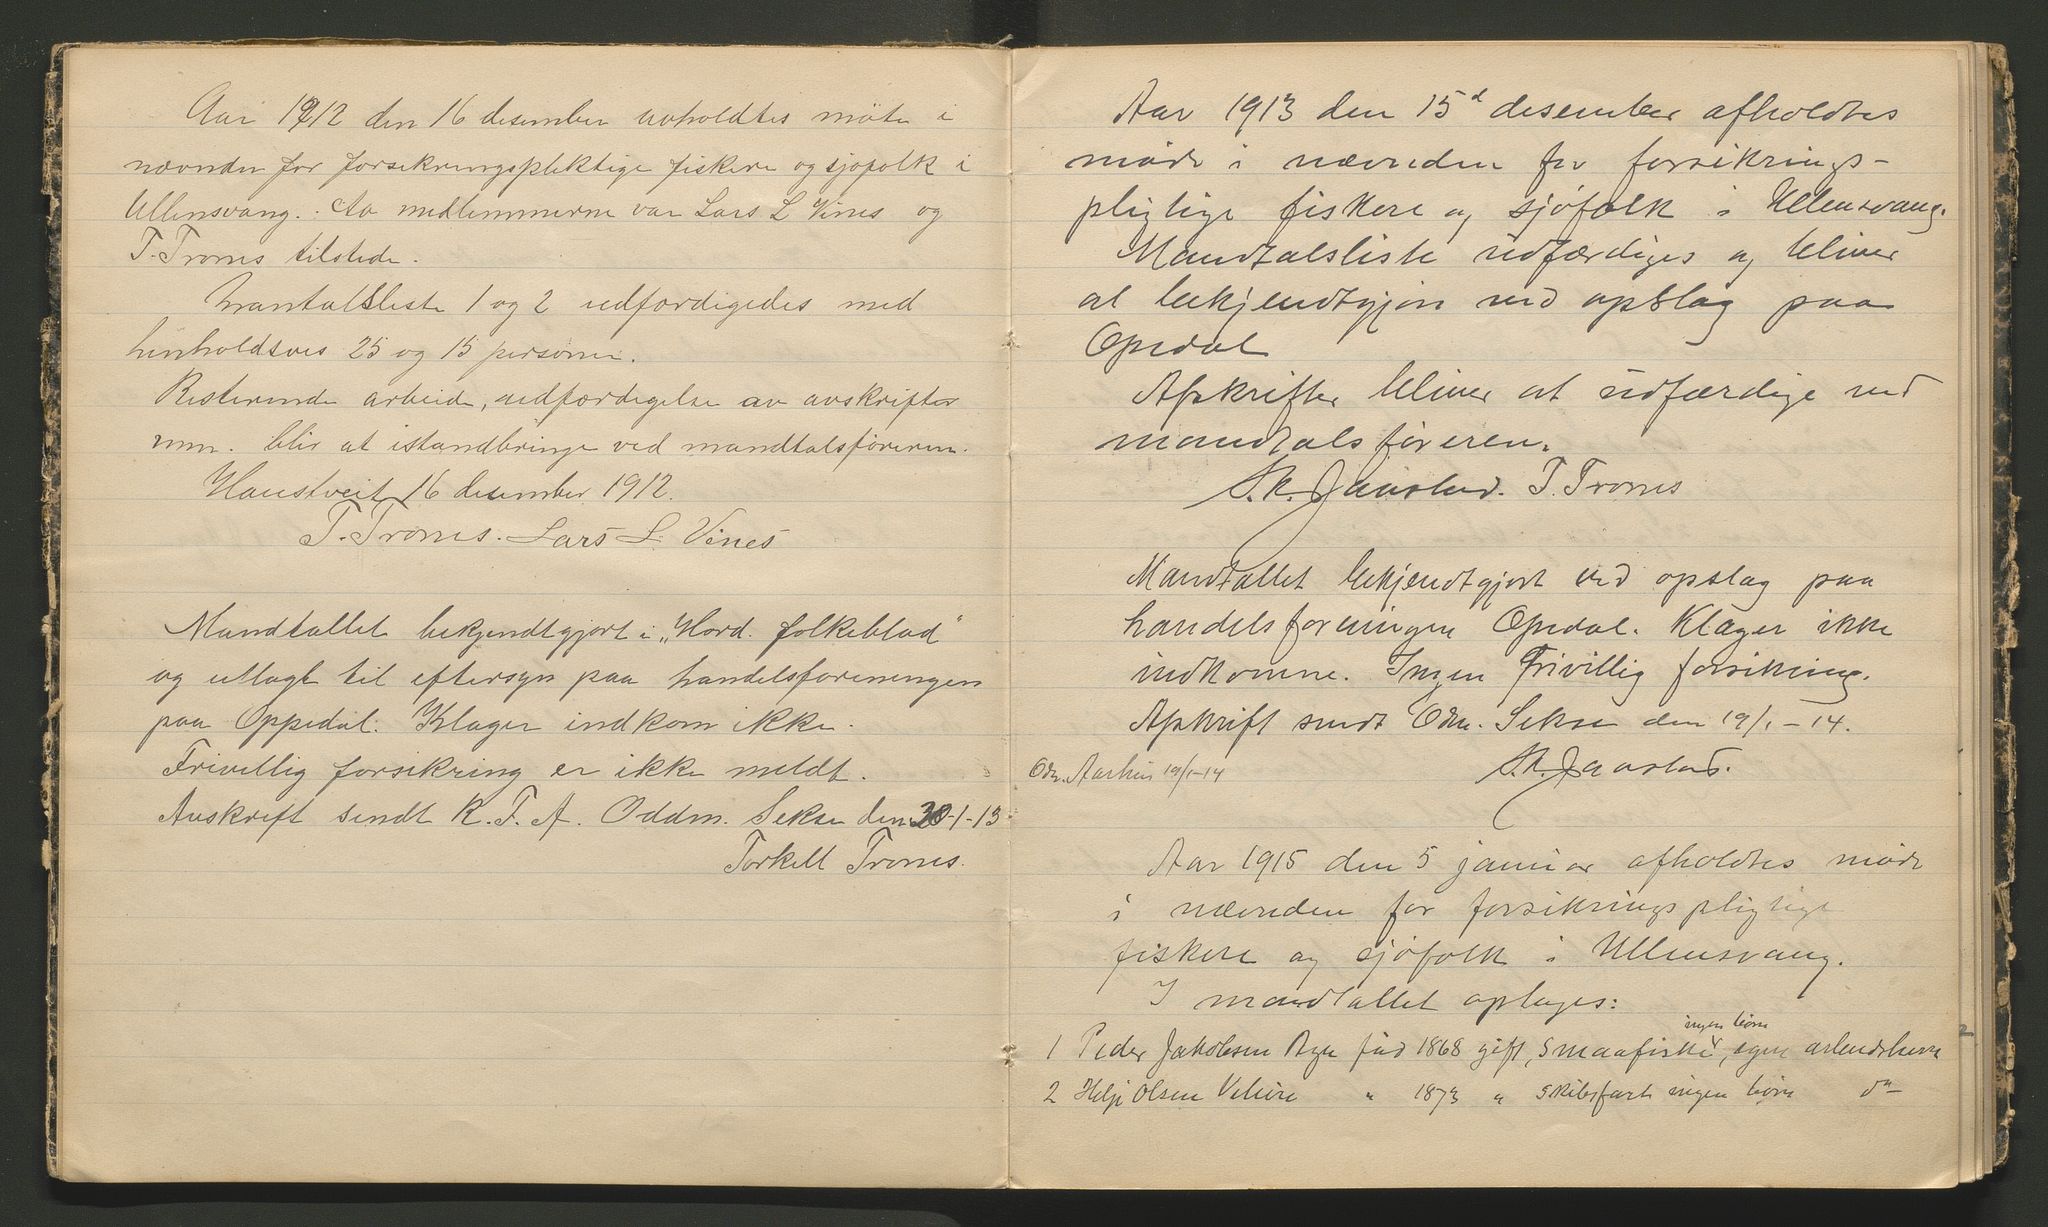 Aar 1912 den 16 desember avholdtes møte i
nævnden for forsikringspliktige fiskere og sjøfolk i
Ullensvang. Av medlemmerne var Lars L Vines og
T. Trones tilstede.
Mantalsliste 1 og 2 utfærdigedes med
henholdsvis 25 og 15 personer.
Resterende arbeide, utfærdigelse av avskrifter
mm. blir at istandbringe ved mandtalsføreren.
Haustveit 16 desember 1912.
T. Trones. Lars L. Vines
Mandtallet bekjendtgjort i „Hord. folkeblad"
og utlagt til eftersyn paa handelsforeningen
paa Oppedal. Klager indkom ikke.
Frivillig forsikring er ikke meldt.
Avskrift sendt R. F. A. Oddm. Sekse den 20-1-13
Torkell Trones.
Aar 1913 den 15d desember afholdtes
møde i nævnden for forsikrings-
pligtige fiskere og sjøfolk i Ullensvang.
Mandtalsliste udfærdiges og bliver
at bekjendtgjøre ved opslag paa
Opedal
Afskrifter bliver at udfærdige ved
mandtalsføreren.
S. K. Jaastad. T. Trones
Mandtallet bekjendtgjort ved opslag paa
handelsforeningen Opedal. Klager ikke
indkomne. Ingen frivillig forsikring.
Afskrift sendt Odm. Sekse den 19/1-14.
Odm. Aarhus 19/1-14
S. K. Jaastad.
Aar 1915 den 5 januar afholdtes møde
i nævnden for forsikringspligtige
fiskere og sjøfolk i Ullensvang.
I mandtallet optages:
ingen børn
1 Peder Jakobsen fød 1868 gift, smaafiske, egen arbeidsherre
2 Helje Olsen Velure " 1873 " skibsfart ingen børn do